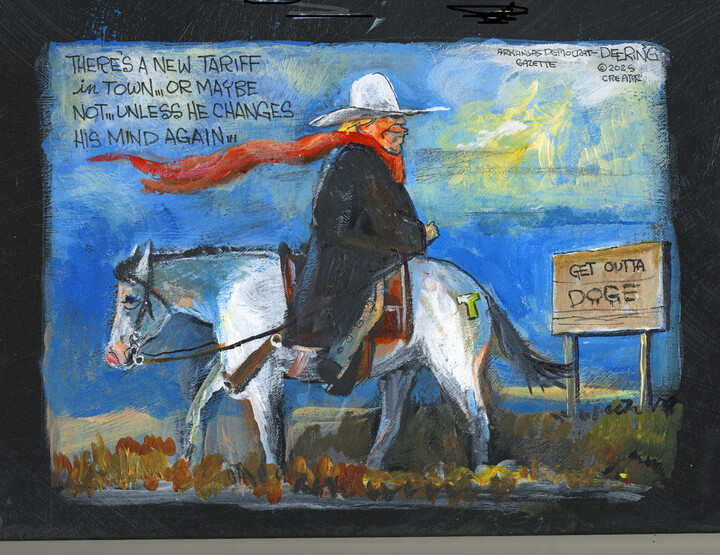 THERE'S A NEW TARIFF
in TOWN... OR MAYBE
NOT... UNLESS HE CHANGES
HIS MIND AGAIN...
ARKANSAS DEMOCRAT-
GAZETTE
DEERING
©2025
CREATOR
GET OUTTA
DOGE
T